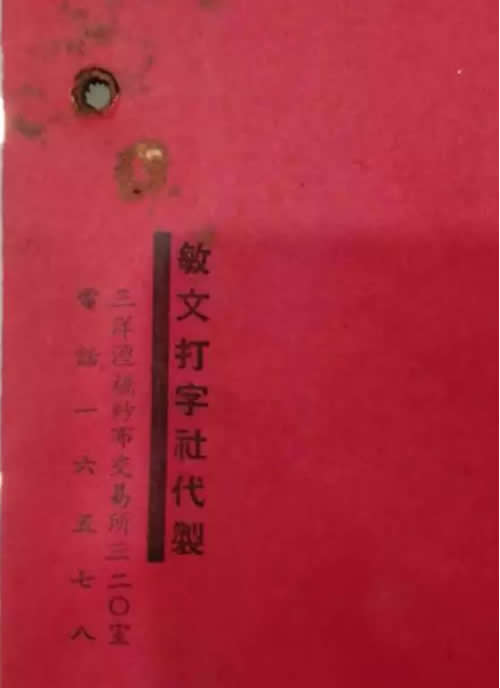 敏文打字社代製
三洋涇橋紗布交易所三二〇室
電話一六五七八